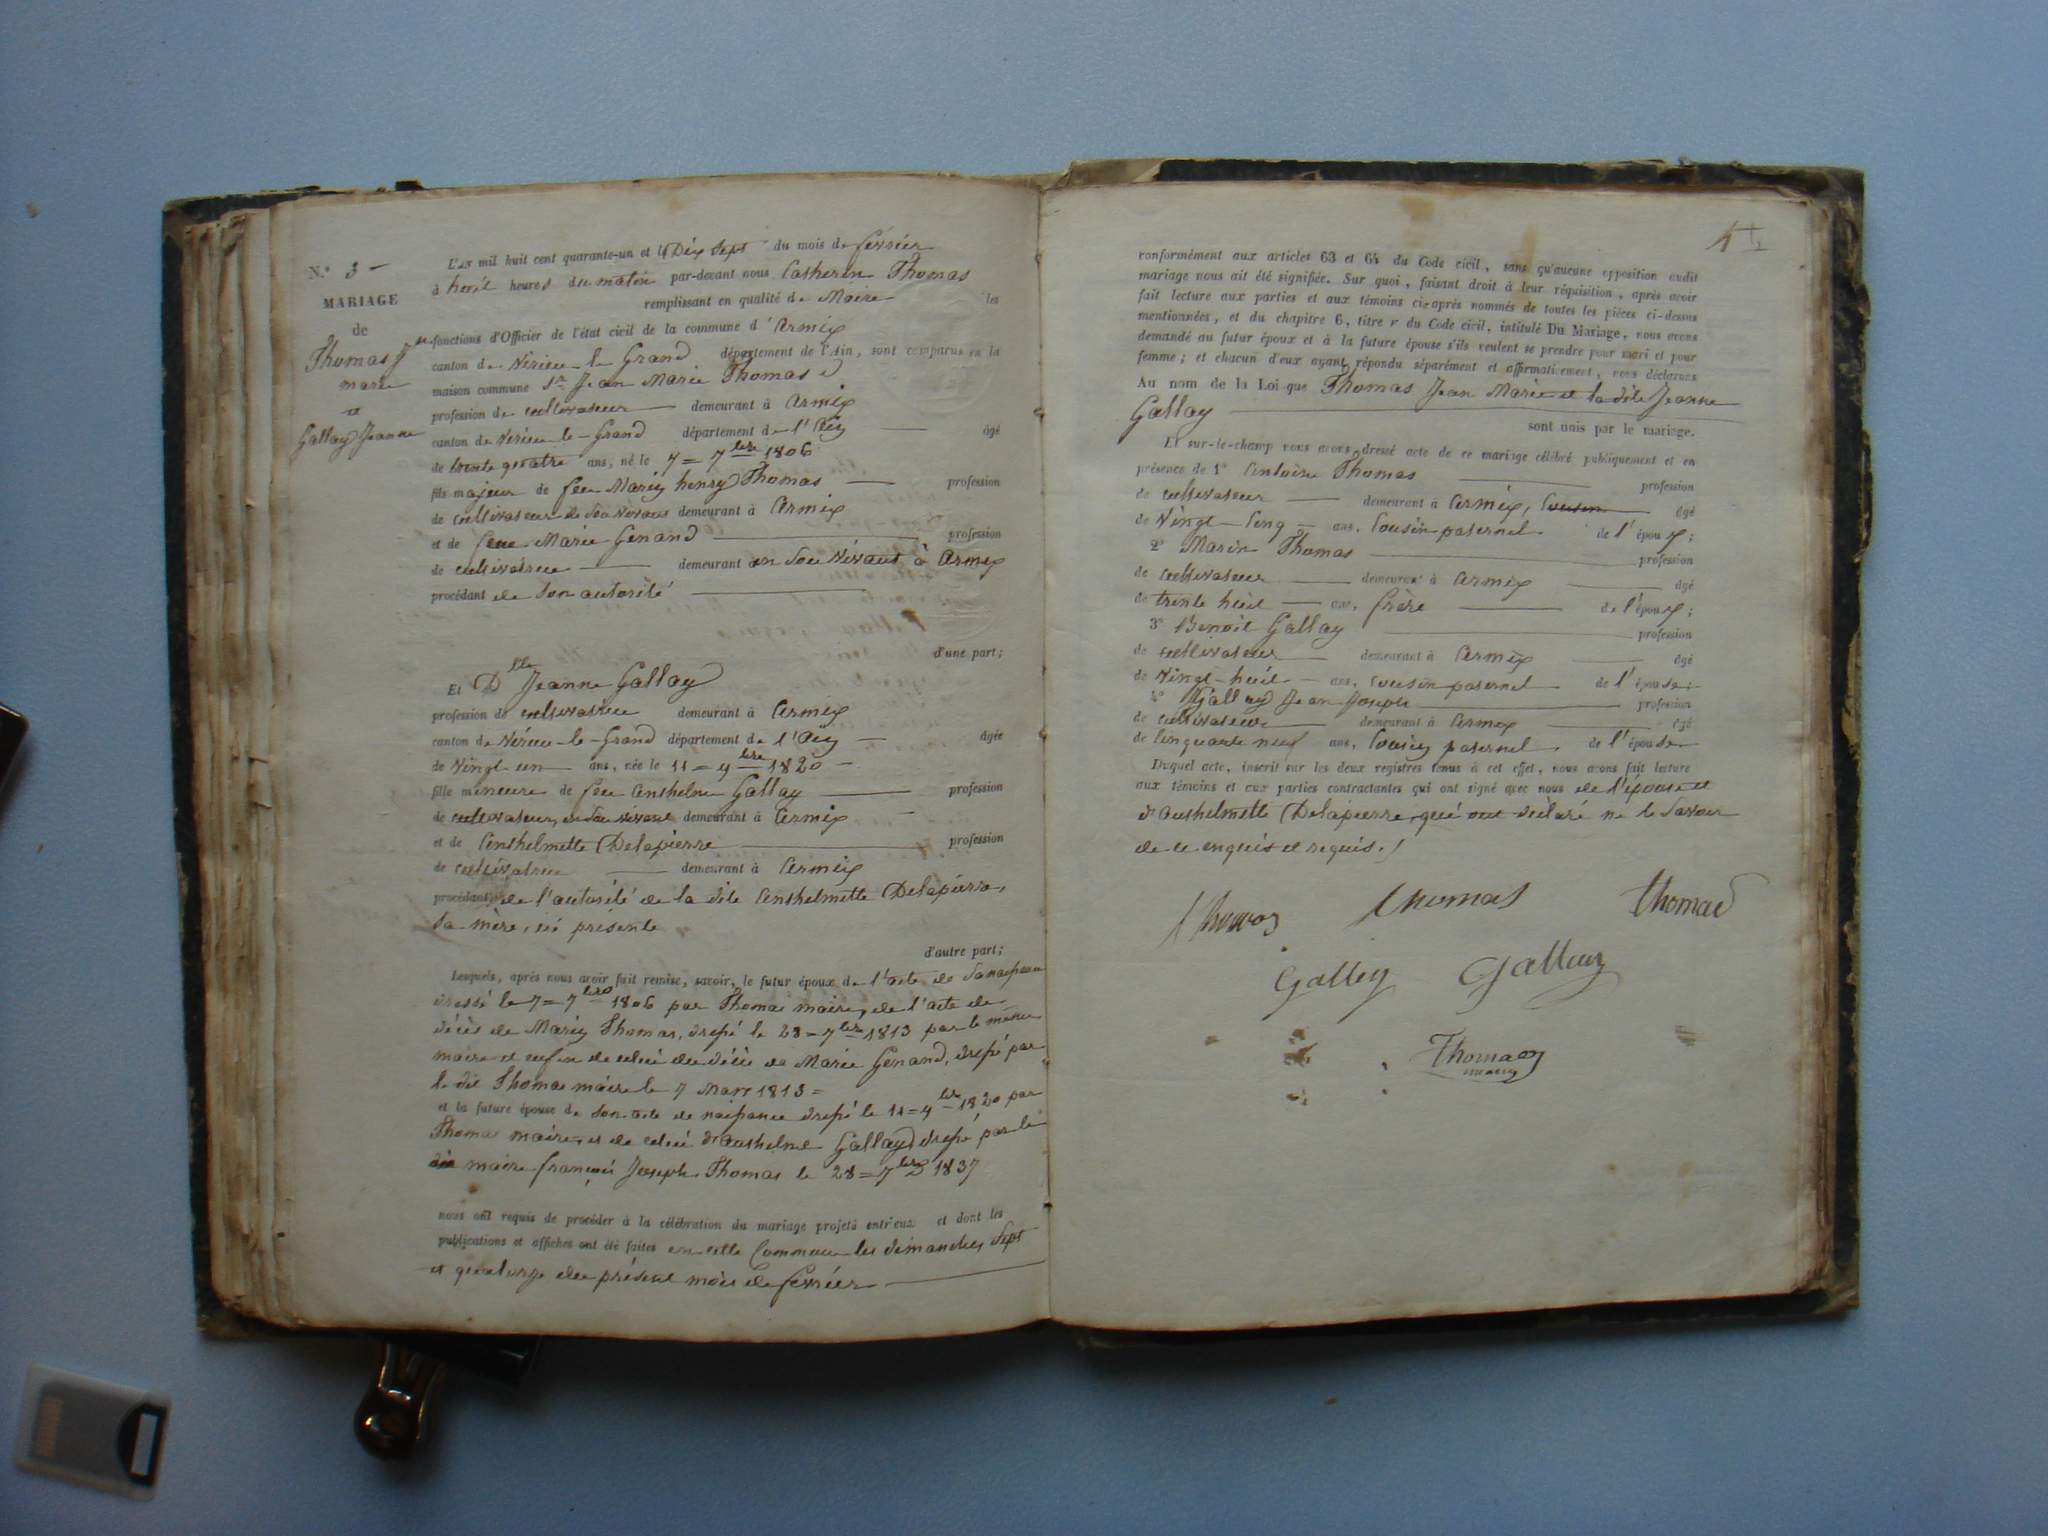 N.º 3
MARIAGE
de
Thomas Jn
marie
et
Gallay Jeanne
L'an mil huit cent quarante-un et le Dix Sept du mois de février
à huit heures du matin par-devant nous Catherin Thomas
remplissant en qualité de Maire les
fonctions d'Officier de l'état civil de la commune d'Armix
canton de Virieu-le-Grand département de l'Ain, sont comparus en la
maison commune Sr Jean Marie Thomas
profession de cultivateur demeurant à Armix
canton de Virieu-le-Grand département de l'Ain âgé
de trente quatre ans, né le 7 = 7bre 1806
fils majeur de feu Marin henry Thomas profession
de cultivateur de son vivant demeurant à Armix
et de feue Marie Genand profession
de cultivatrice demeurant en son Vivant à Armix
procédant de son autorité
d'une part;
Et Dlle Jeanne Gallay
profession de cultivatrice demeurant à Armix
canton de Virieu-le-Grand département de l'Ain âgée
de Vingt-un ans, née le 11 = 9bre 1820
fille mineure de feu Anthelme Gallay profession
de cultivateur, en son vivant demeurant à Armix
et de Anthelmette Delapierre profession
de cultivatrice demeurant à Armix
procédant de l'autorité de la dite Anthelmette Delapierre,
sa mère, ici présente
d'autre part;
Lesquels, après nous avoir fait remise, savoir, le futur époux de l'acte de sa naissance
dressé le 7 = 7bre 1806 par Thomas maire, de l'acte de
décès de Marin Thomas, dressé le 23 = 7bre 1813 par le même
maire et enfin de celui du décès de Marie Genand, dressé par
le dit Thomas maire le 7 Mars 1813 =
et la future épouse de son acte de naissance dressé le 11 = 9bre 1820 par
Thomas maire, et de celui d'Anthelme Gallay dressé par le
dit maire françois Joseph Thomas le 28 = 7bre 1837
nous ont requis de procéder à la célébration du mariage projeté entr'eux et dont les
publications et affiches ont été faites en cette Commune les dimanches Sept
et quatorze du présent mois de février
conformément aux articles 63 et 64 du Code civil, sans qu'aucune opposition audit
mariage nous ait été signifiée. Sur quoi, faisant droit à leur réquisition, après avoir
fait lecture aux parties et aux témoins ci-après nommés de toutes les pièces ci-dessus
mentionnées, et du chapitre 6, titre v du Code civil, intitulé Du Mariage, nous avons
demandé au futur époux et à la future épouse s'ils veulent se prendre pour mari et pour
femme; et chacun d'eux ayant répondu séparément et affirmativement, nous déclarons
Au nom de la Loi que Thomas Jean Marie et la dite Jeanne
Gallay
sont unis par le mariage.
Et sur-le-champ nous avons dressé acte de ce mariage célébré publiquement et en
présence de 1º Antoine Thomas profession
de cultivateur demeurant à Armix, Cousin âgé
de Vingt-Cinq ans, Cousin paternel de l'époux;
2º Marin Thomas profession
de cultivateur demeurant à Armix âgé
de trente huit ans, frère de l'époux;
3º Benoit Gallay profession
de cultivateur demeurant à Armix âgé
de Vingt-huit ans, Cousin paternel de l'épouse;
4º Gallay Jean Joseph profession
de cultivateur demeurant à Armix âgé
de Cinquante neuf ans, Cousin paternel de l'épouse
Duquel acte, inscrit sur les deux registres tenus à cet effet, nous avons fait lecture
aux témoins et aux parties contractantes qui ont signé avec nous de l'épouse et
d'Anthelmette Delapierre, qui ont déclaré ne le savoir
de ce enquis et requis.
Thomas Thomas
Galley Gallay
Thomas
maire